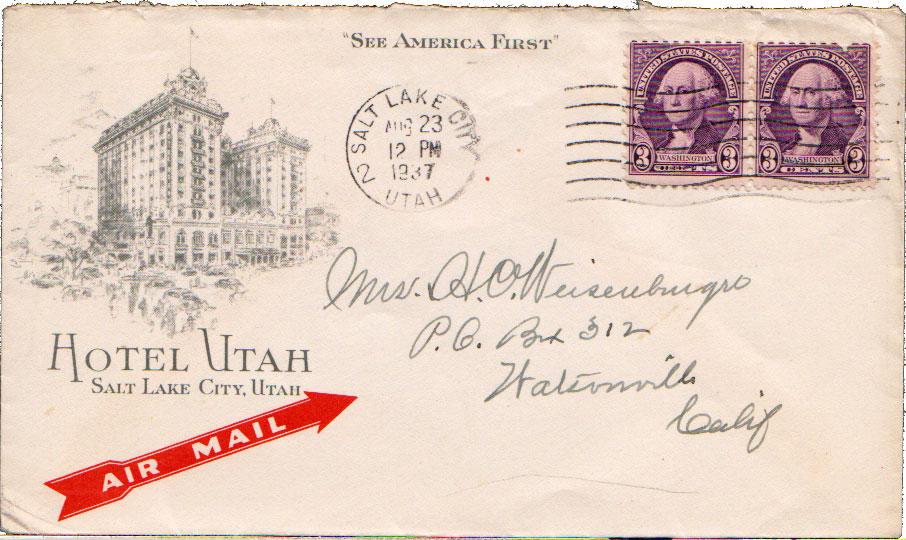 "SEE AMERICA FIRST"
UNITED STATES POSTAGE
3 WASHINGTON 3
CENTS
UNITED STATES POSTAGE
3 WASHINGTON 3
CENTS
SALT LAKE CITY
AUG 23
12 PM
1937
2
UTAH
Mrs. H. O. Weisenburger
P.O. Box 312
Watsonville
Calif
HOTEL UTAH
SALT LAKE CITY, UTAH
AIR MAIL